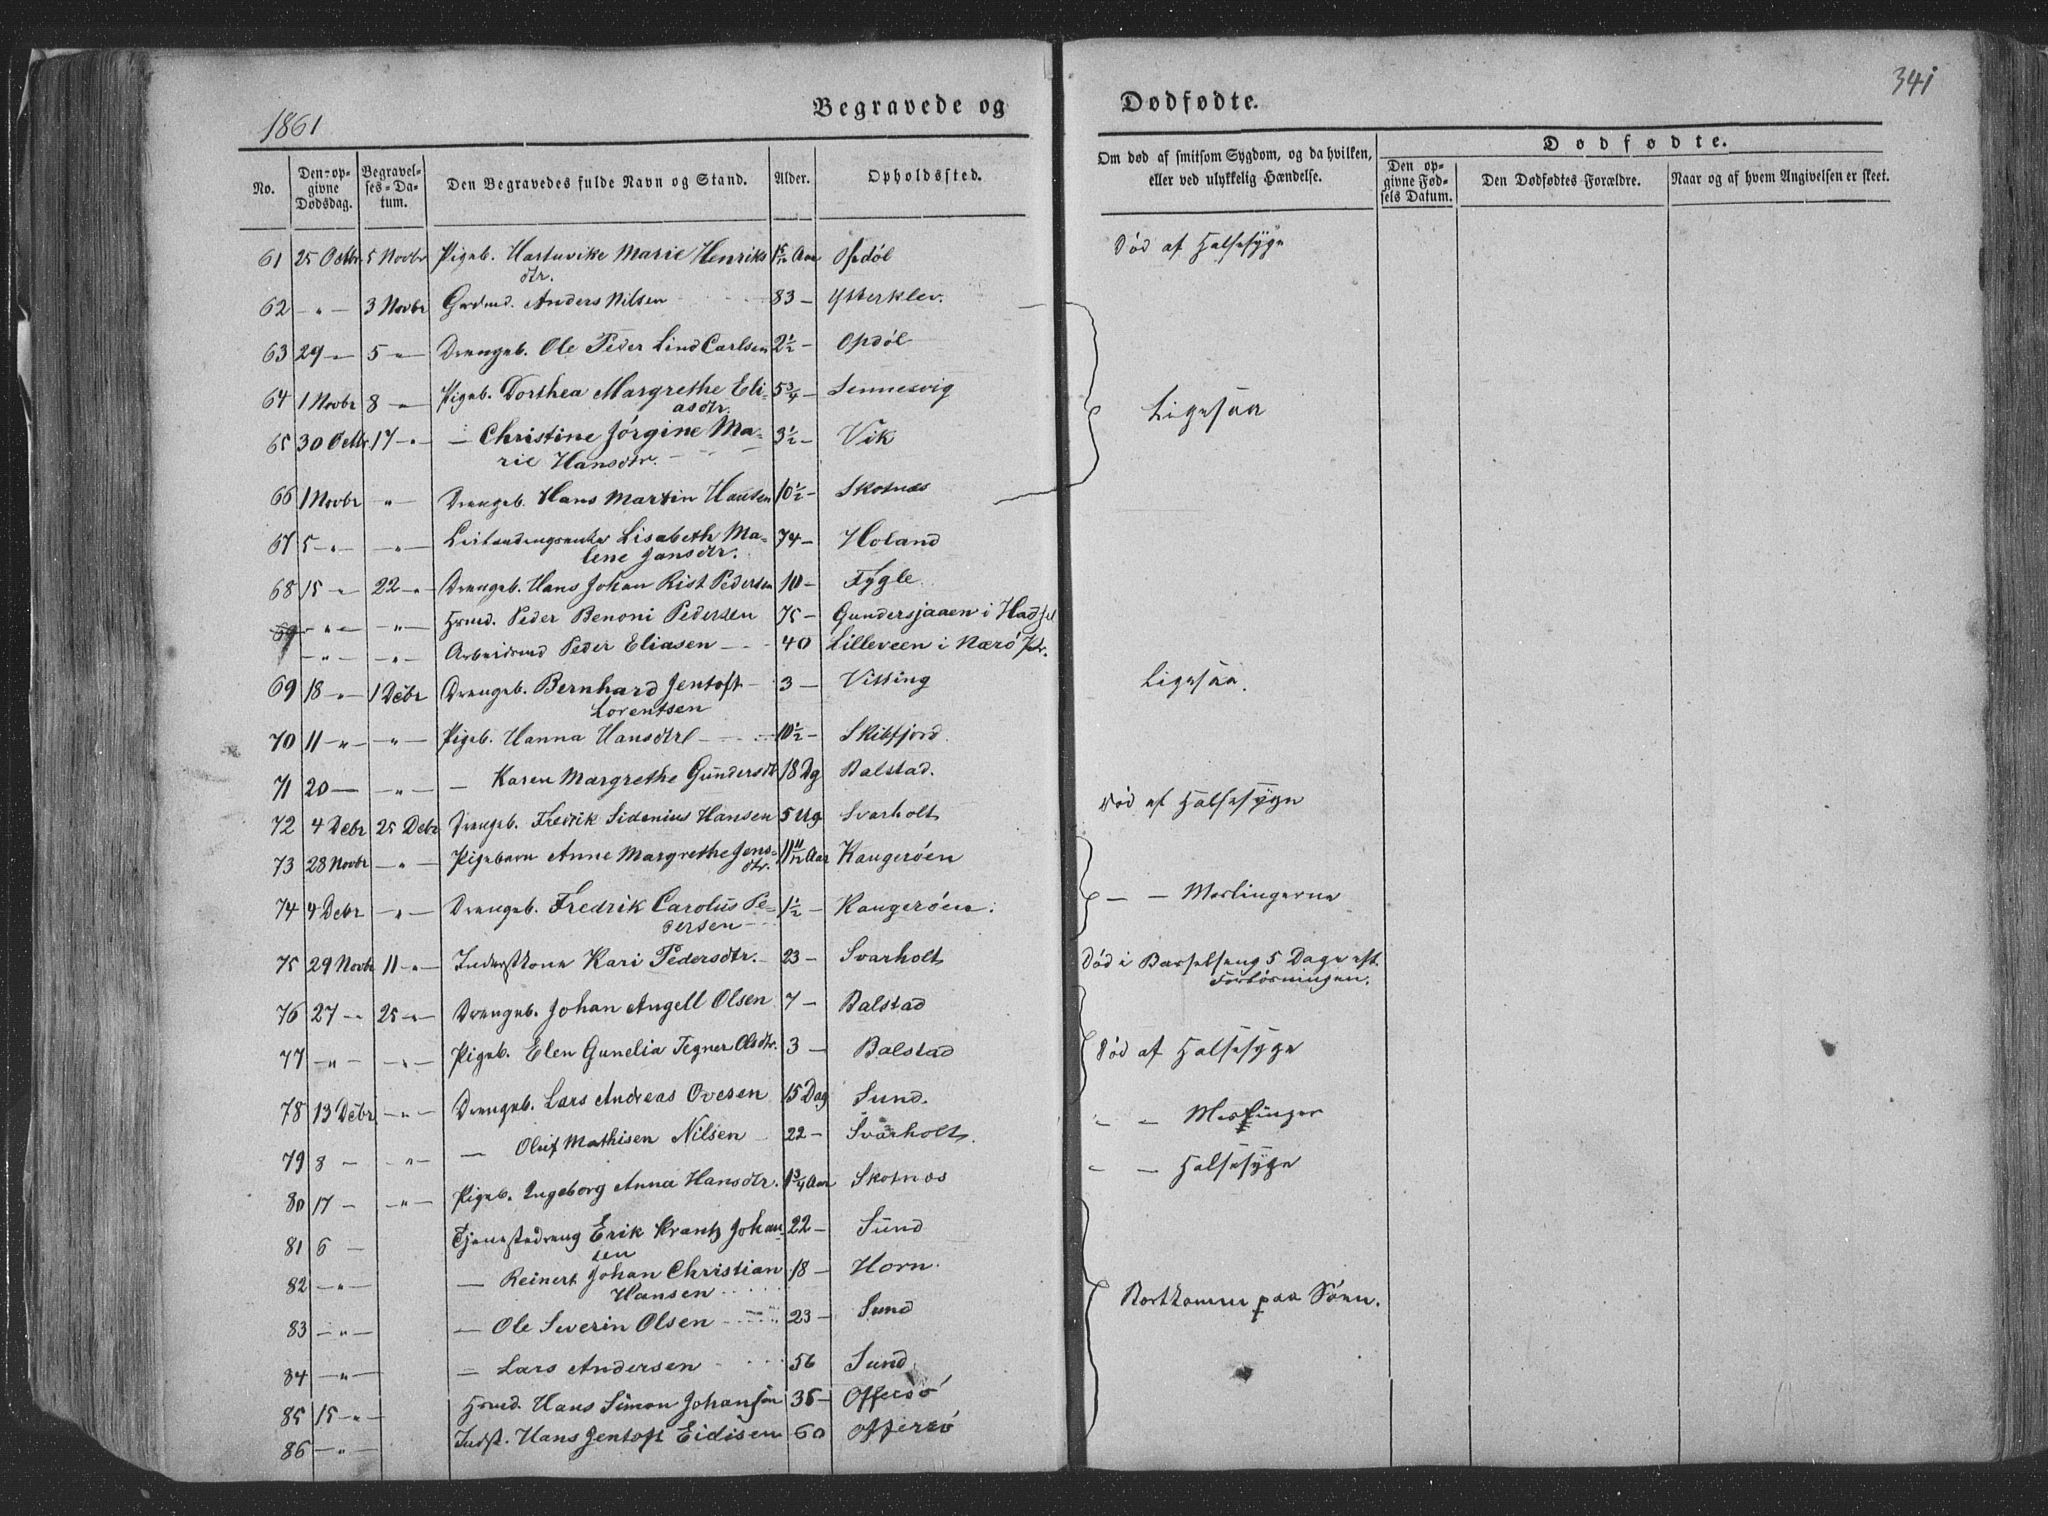 1861
Begravede og
Dødfødte.
341
No.
Den opgivne Dødsdag.
Begravelses-Datum.
Den Begravedes fulde Navn og Stand.
Alder.
Opholdssted.
Om død af smitsom Sygdom, og da hvilken, eller ved ulykkelig Hændelse.
Dødfødte.
Den opgivne Fødsels Datum.
Den Dødfødtes Forældre.
Naar og af hvem Angivelsen er skeet.
61 25 Octbr 5 Novbr Pigeb. Hartvvike Marie Henriksdtr. Aar Opdøl Død af Halsesyge
62 -"- 3 Novbr Grdmd. Anders Nilsen 83 - Ytterklev.
63 29 -"- 5 -"- Drengeb. Ole Peder Lind Carlsen 2½ - Opdøl
64 1 Novbr 8 -"- Pigeb. Dorthea Margrethe Eliasdtr. 5¾ - Sennesvig Ligesaa
65 30 Octbr 17 -"- - Christine Jørgine Marie Hansdtr. 3½ - Vik
66 1 Novbr -"- Drengeb. Hans Martin Hansen 10½ - Skotnæs
67 5 -"- -"- Lisabeth Malene Jansdtr. 74 - Holand
68 15 -"- 22 -"- Drengeb. Hans Johan Rist Pedersen 10 - Fygle
69 -"- -"- Hsmd. Peder Benoni Pedersen 75 - Gundersjaaen i Hadsel
-"- -"- Arbeidsmd Peder Eliasen 40 Lilleveen i Nærö Pr.
69 18 -"- 1 Debr Drengeb. Bernhard Jentoft Lorentsen 3 - Vitting Ligesaa.
70 11 -"- -"- Pigeb. Hanna Hansdtr 10½ - Skibfjord
71 20 - -"- - Karen Margrethe Gundersdtr 18 Dg Balstad.
72 4 Debr 25 Debr Drengeb. Fredrik Sidenius Hansen 5 Ug Svarholt Død af Halsesyge
73 28 Novbr -"- Pigebarn Anne Margrethe Jensdtr. 11 11/12 Aar Kangerøen
74 4 Debr -"- Drengeb. Fredrik Carolus Pedersen 1½ - Kangerøen. - - Meslingerne
75 29 Novbr 11 -"- Inderstkone Kari Pedersdtr. 23 - Svarholt Død i Barselseng 5 Dage eft. Forløsningen.
76 27 -"- 25 -"- Drengeb. Johan Angell Olsen 7 - Balstad
77 -"- -"- Pigeb. Elen Gunelia Tegner Olsdtr. 3 - Balstad Død af Halsesyge
78 13 Debr -"- Drengeb. Lars Andreas Ovesen 15 Dag Sund. " - Meslinger
79 8 - -"- - Oluf Mathisen Nilsen 22 - Svarholt. " - Halsesyge
80 17 - -"- Pigeb. Ingeborg Anna Hansdtr. 1¾ Aar Skotnæs
81 6 - Tjenestedreng Erik Krantz Johansen 22 - Sund
82 -"- - Reinert Johan Christian Hansen 18 - Horn. Bortkomne paa Søen.
83 -"- - Ole Severin Olsen 23 - Sund
84 -"- - Lars Andersen 56 Sund
85 15 -"- Hsmd. Hans Simon Johansen 35 - Offersö
86 -"- Indst. Hans Jentoft Eidisen 60 Offersö